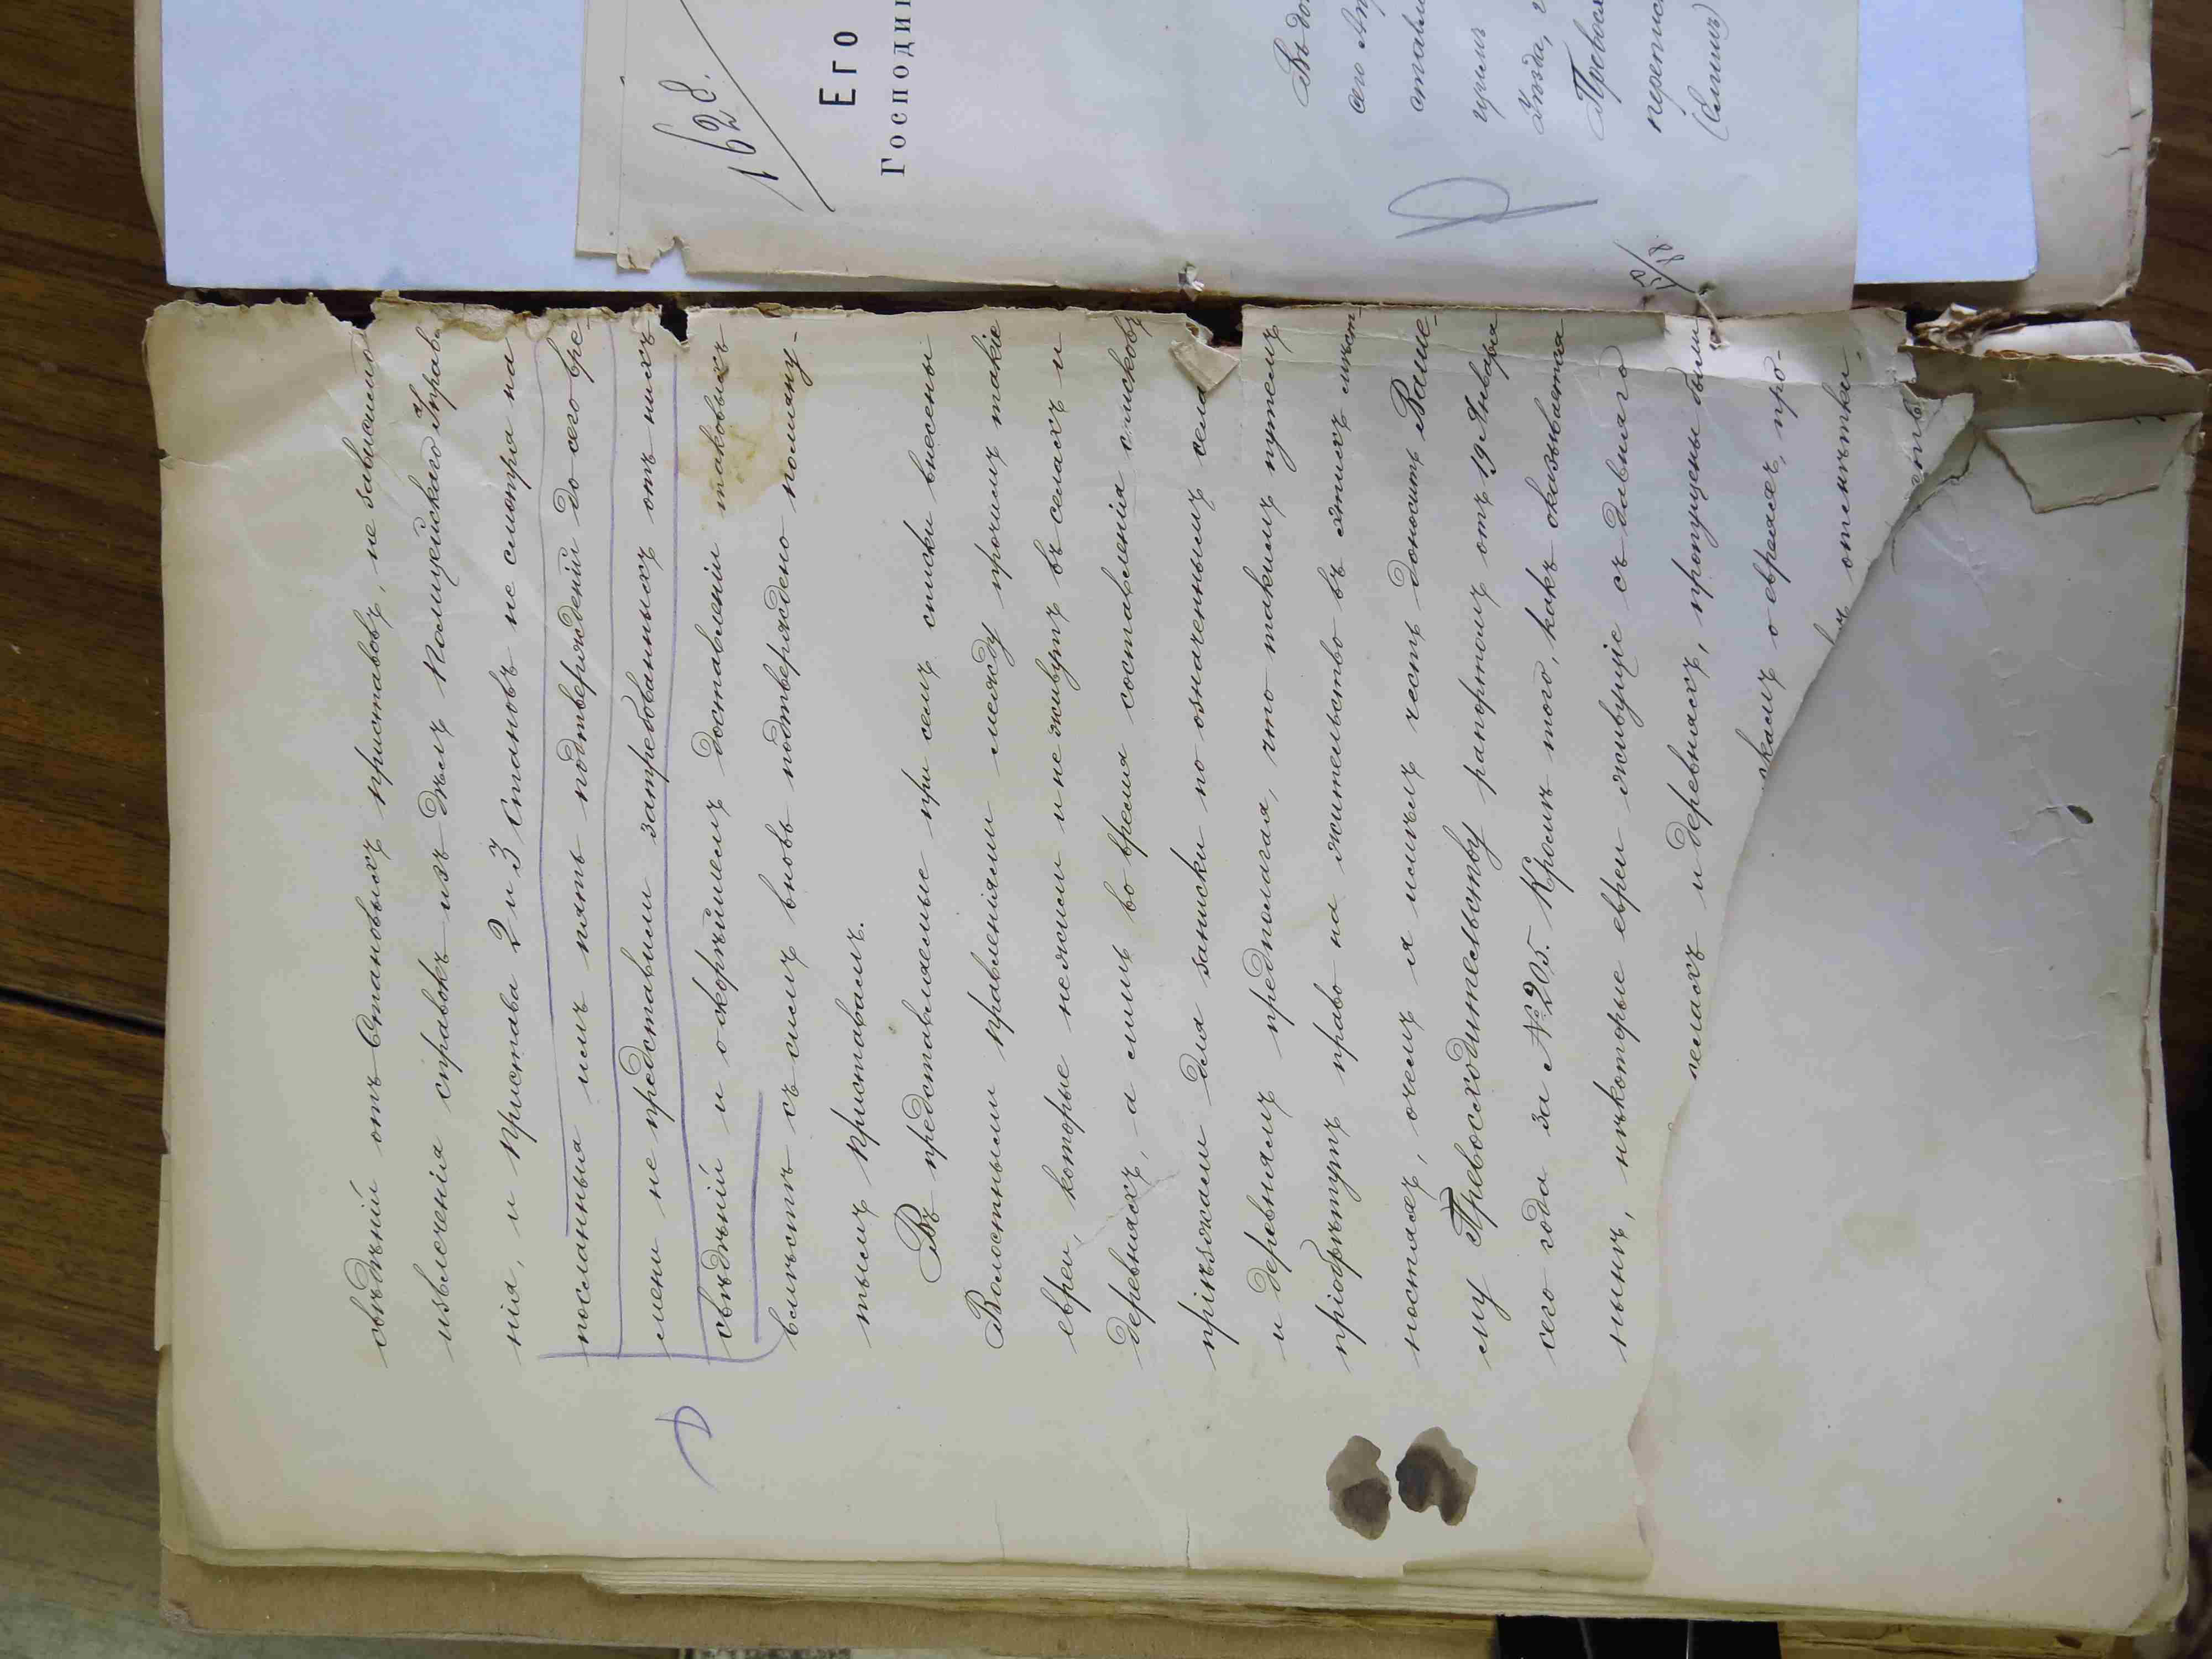 свѣдѣній отъ Становыхъ приставовъ, не зависимо
извлеченія справокъ изъ дѣлъ Полицейскаго Управле
нія, и пристава 2 и 3 становъ не смотря на
посланныя имъ пять подтвержденій до сего вре-
мени не представили затребованныхъ отъ нихъ
свѣдѣній и о скорѣйшемъ доставленіи таковыхъ
вмѣстѣ съ симъ вновь подтверждено помяну-
тымъ приставамъ.
Въ представляемые при семъ списки внесены
Волостными правленіями между прочимъ такіе
евреи, которые не жили и не живутъ въ селахъ и
деревняхъ, а лишь во время составленія списковъ
пріѣзжали для записки по означеннымъ селамъ
и деревнямъ предполагая, что такимъ путемъ
пріобрѣтутъ право на жительство въ этихъ мѣст-
ностяхъ, о чемъ я имѣлъ честь доносить Ваше-
му Превосходительству рапортомъ отъ 19 Января
сего года за № 205. Кромѣ того, какъ оказывается
нынѣ, нѣкоторые евреи живущіе съ давняго
селахъ и деревняхъ, пропущены были
скамъ о евреяхъ, про-
отмѣтки
1628.
Его
Господи
Вѣдо
сего
ставл
Уѣзда,
Превосх
перепис